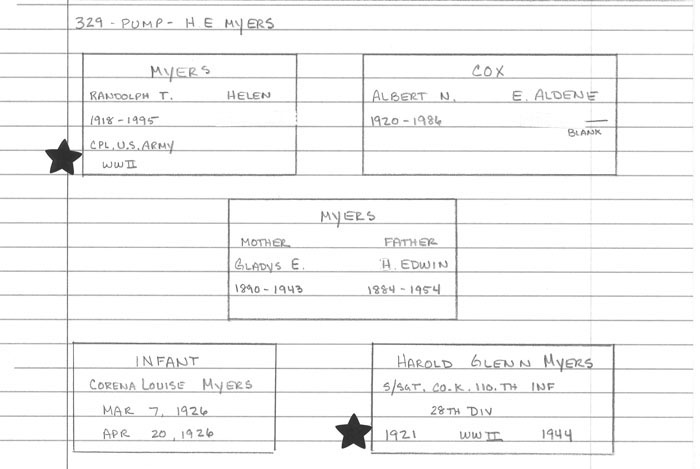 329 - PUMP - H E MYERS
MYERS
RANDOLPH T. HELEN
1918 - 1995
CPL, U.S. ARMY
WW II
COX
ALBERT N. E. ALDENE
1920 - 1986 —
BLANK
MYERS
MOTHER FATHER
GLADYS E. H. EDWIN
1890 - 1943 1884 - 1954
INFANT
CORENA LOUISE MYERS
MAR 7, 1926
APR 20, 1926
HAROLD GLENN MYERS
S/SGT. CO. K. 110. TH INF
28TH DIV
1921 WW II 1944